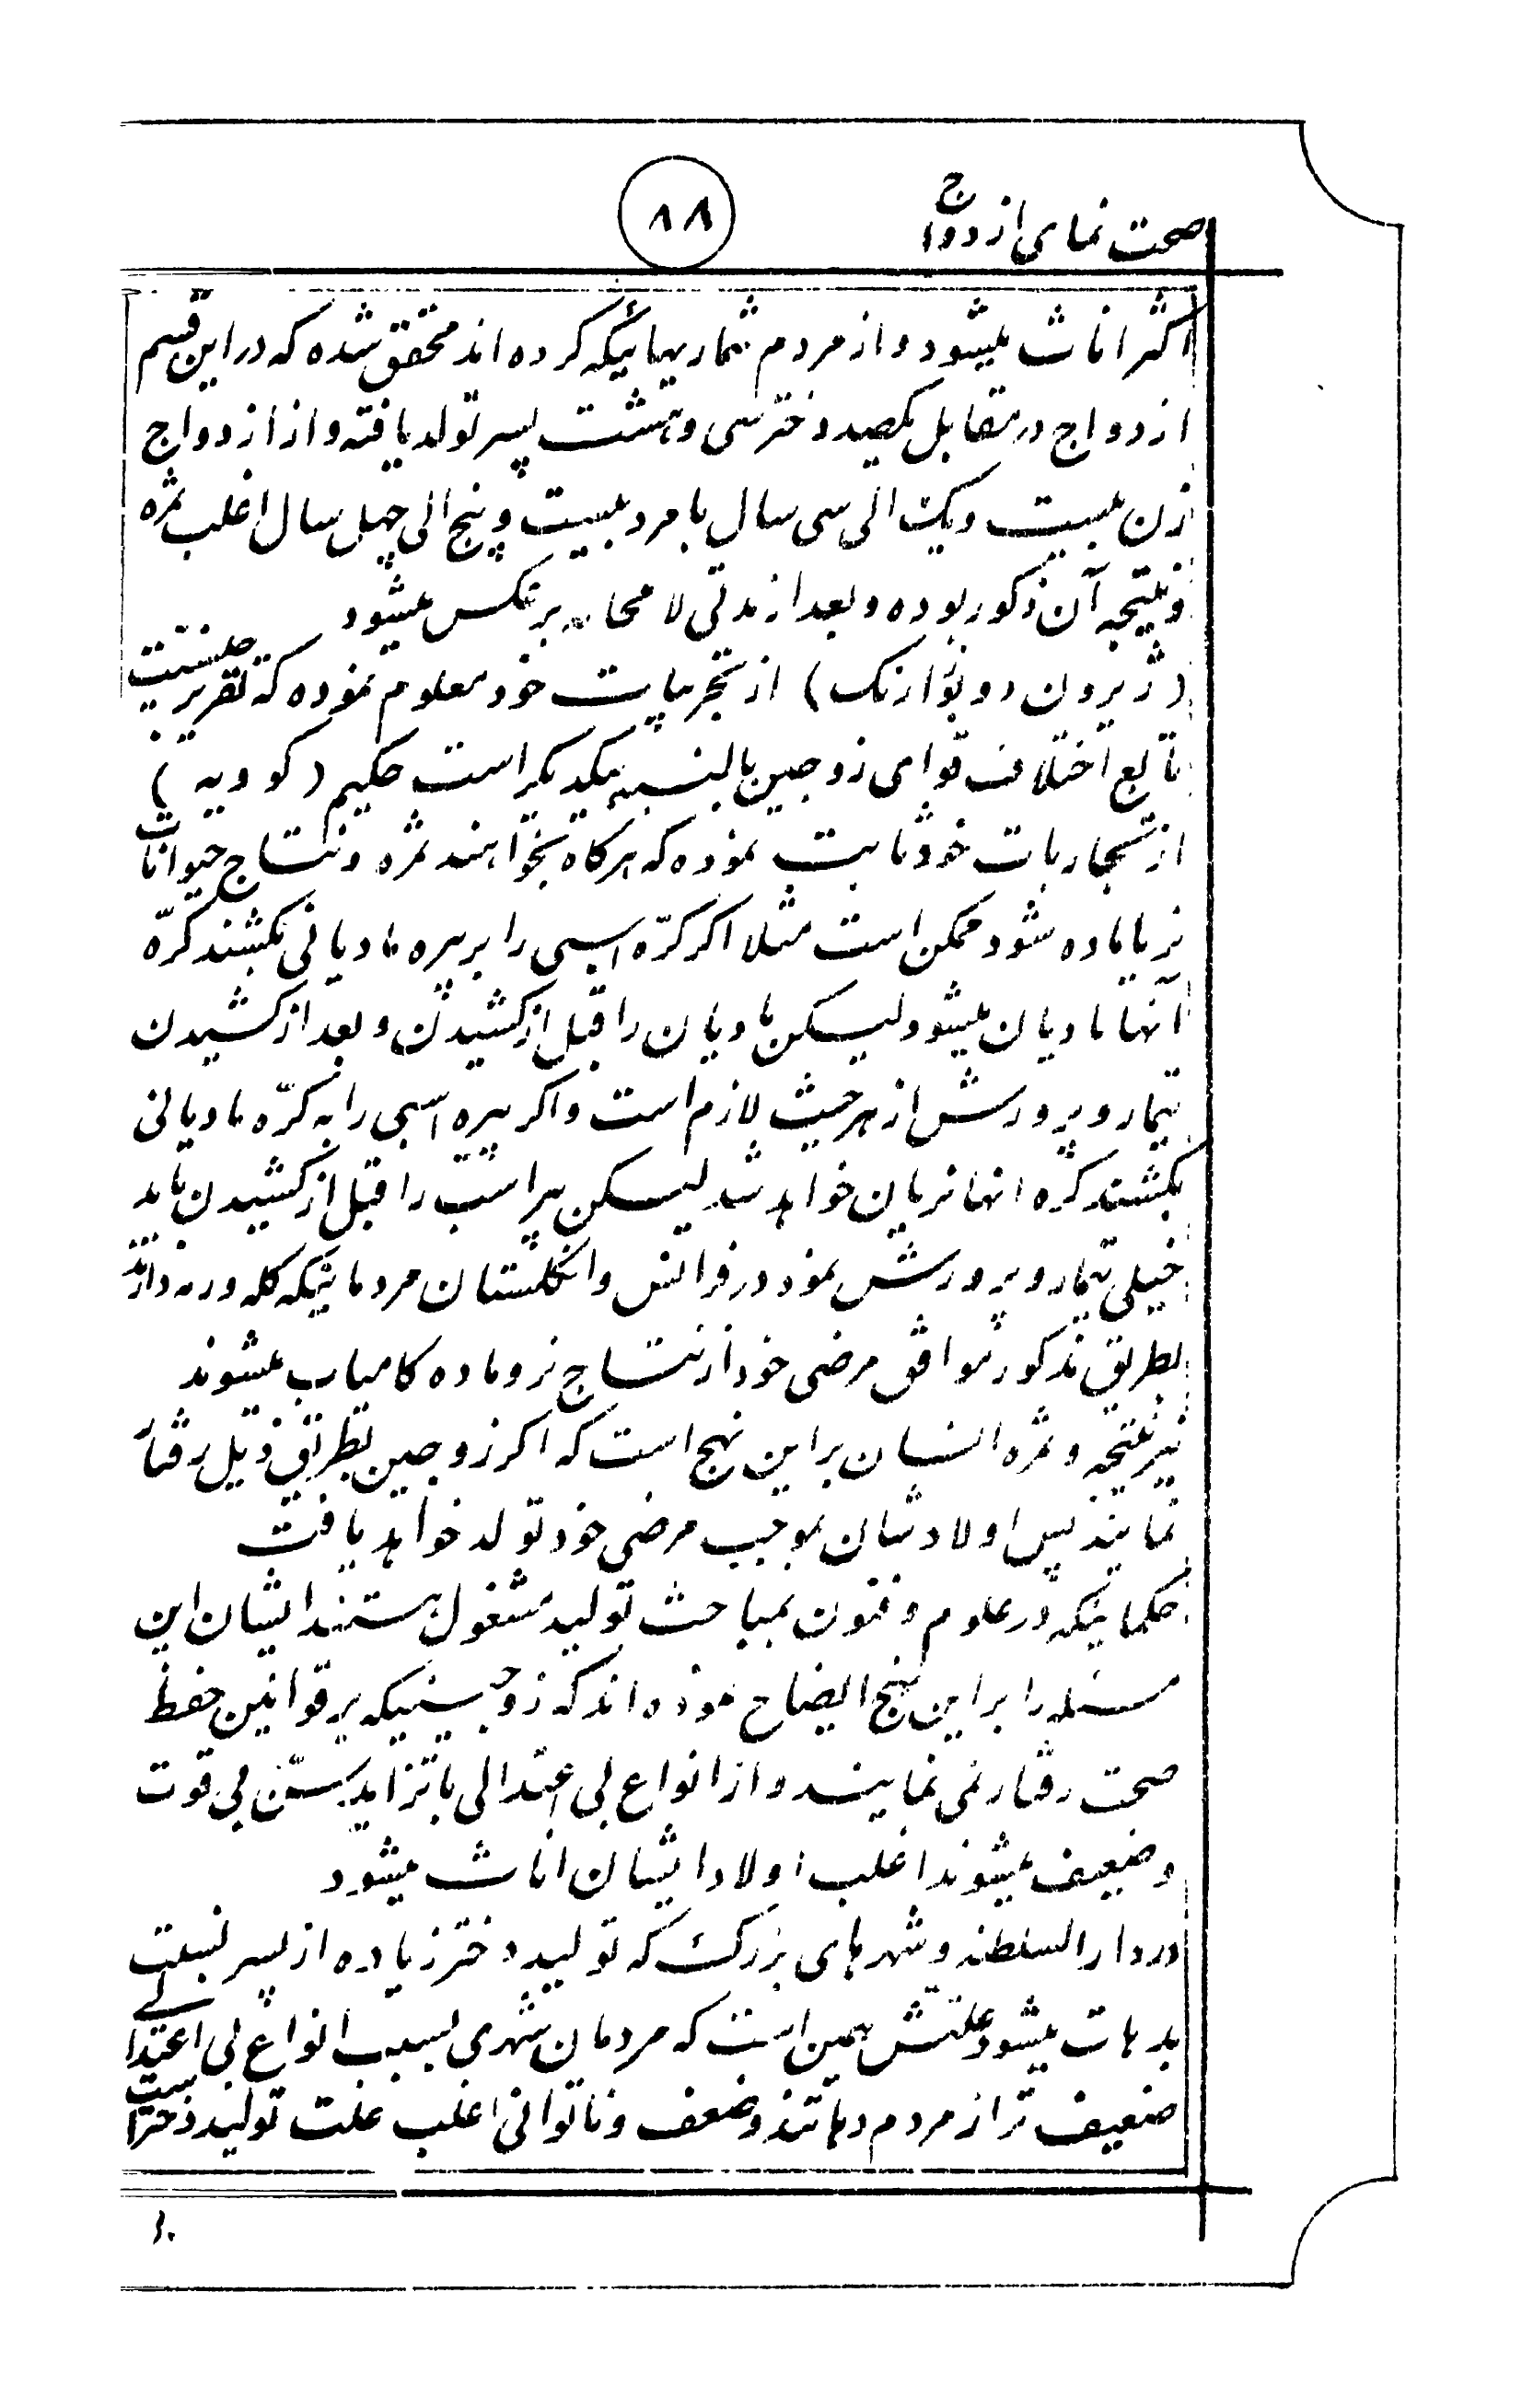 صحت نمای ازدواج
۸۸
اکثر اناث میشود و از مردم شماریهائیکه کرده اند محقق شده که در این قسم
ازدواج در مقابل یکصد دختر سی و هشت پسر تولد یافته و از ازدواج
زن بیست ویک الی سی سال با مرد بیست و پنج الی چهل سال اغلب ثمره
و نتیجه آن ذکور بوده و بعد از مدتی لا محاله برعکس میشود
(ژیرون دو بوزارنک) از تجربیات خود معلوم نموده که تقریر جنسیت
تابع اختلاف قوای زوجین بالنسبه بیکدیگر است حکیم (کو ویه)
از تجاربات خود ثابت نموده که هرگاه بخواهند ثمره و نتاج حیوانات
نر یا ماده شود ممکن است مثلا اکر کرّه اسبی را بر پیره مادیانی بکشند کرّه
آنها مادیان میشود لیکن مادیان را قبل از کشیدن و بعد از کشیدن
تیمار و پرورش از هر حیث لازم است و اکر پیره اسبی را به کرّه مادیانی
بکشند کره انها نریان خواهد شد لیکن پیر اسب را قبل از کشیدن باید
خیلی تیمار و پرورش نمود در فرانس و انکلستان مردمانیکه کله ورمه دارند
بطریق مذکور موافق مرضی خود از نتاج نر و ماده کامیاب میشوند
نیز نتیجه و ثمره انسان بر این نهج است که اکر زوجین بطریق ذیل رفتار
نمایند پس اولادشان بموجب مرضی خود تولد خواهد یافت
حکمائیکه در علوم و فنون بمباحث تولید مشغول هستند ایشان این
مسئله را بر این نهج ایضاح نموده اند که زوجینیکه بر قوانین حفظ
صحت رفتار نمی نمایند و از انواع بی اعتدالی یا تزاید سن بی قوت
و ضعیف میشوند اغلب اولاد ایشان اناث میشود
در دار السلطنه و شهرهای بزرک که تولید دختر زیاده از پسر نسبت
بدهات میشود علتش همین است که مردمان شهری بسبب انواع بی اعتدالی
ضعیف تر از مردم دهاتند و ضعف و ناتوانی اغلب علت تولید دختر است